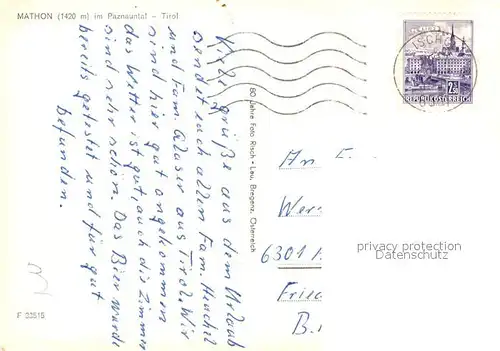 MATHON (1420 m) im Paznauntal - Tirol
Grüße aus dem Urlaub
sendet euch allen Fam. Heuchel
und Fam. Glaser aus Tirol. Wir
sind hier gut angekommen
das Wetter ist gut, auch die Zimmer
sind sehr schön. Das Bier wurde
bereits getestet und für gut
befunden.
60 Jahre Foto Risch-Lau, Bregenz, Österreich
ISCHGL
REPUBLIK ÖSTERREICH
An F
Wer
6301
Fried
B.
privacy protection
Datenschutz
F 23515